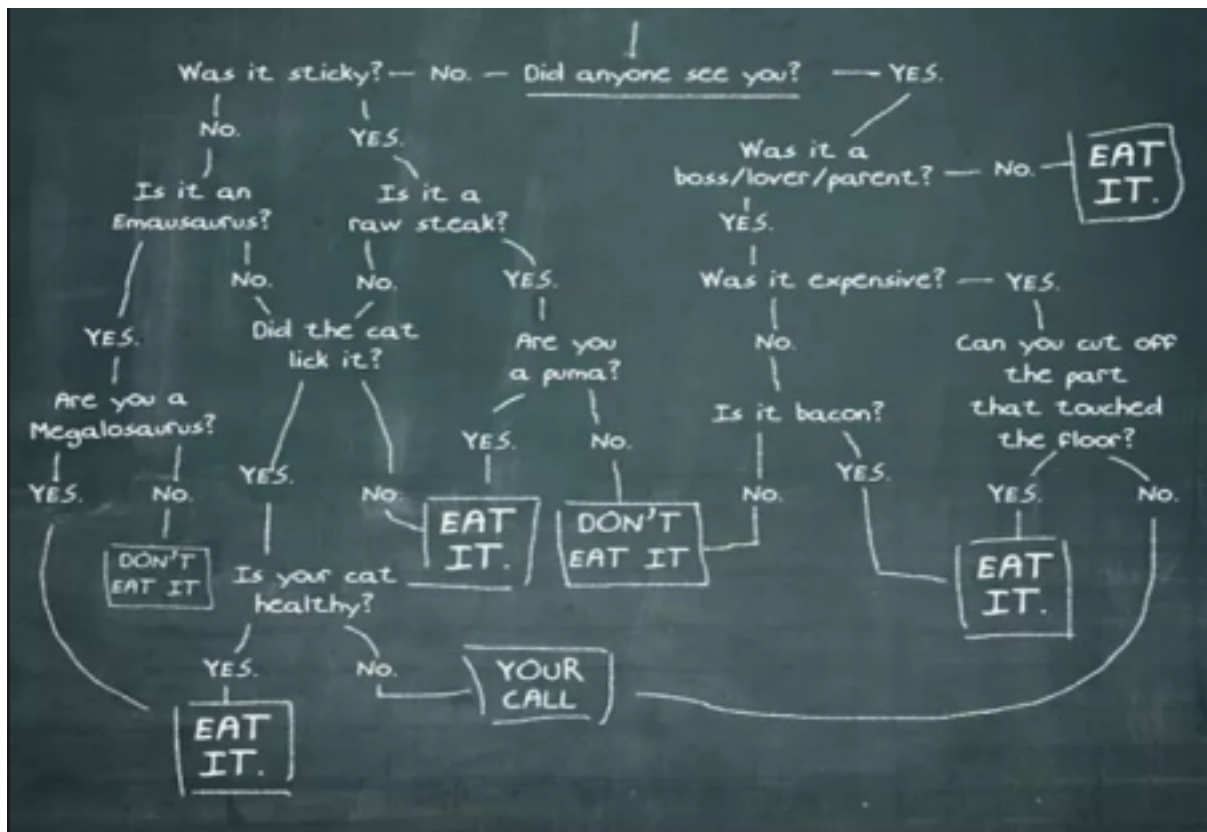 Was it sticky? No. Did anyone see you? YES.
No.
YES.
Was it a
boss/lover/parent?
No.
EAT
IT.
Is it an
Emausaurus?
Is it a
raw steak?
YES.
No.
No.
YES.
Was it expensive? YES.
YES.
Did the cat
lick it?
Are you
a puma?
No.
Can you cut off
the part
that touched
the floor?
Are you a
Megalosaurus?
Is it bacon?
YES.
No.
YES.
No.
YES.
No.
YES.
No.
YES.
No.
EAT
IT.
DON'T
EAT IT
DON'T
EAT IT
Is your cat
healthy?
EAT
IT.
YES.
No.
YOUR
CALL
EAT
IT.